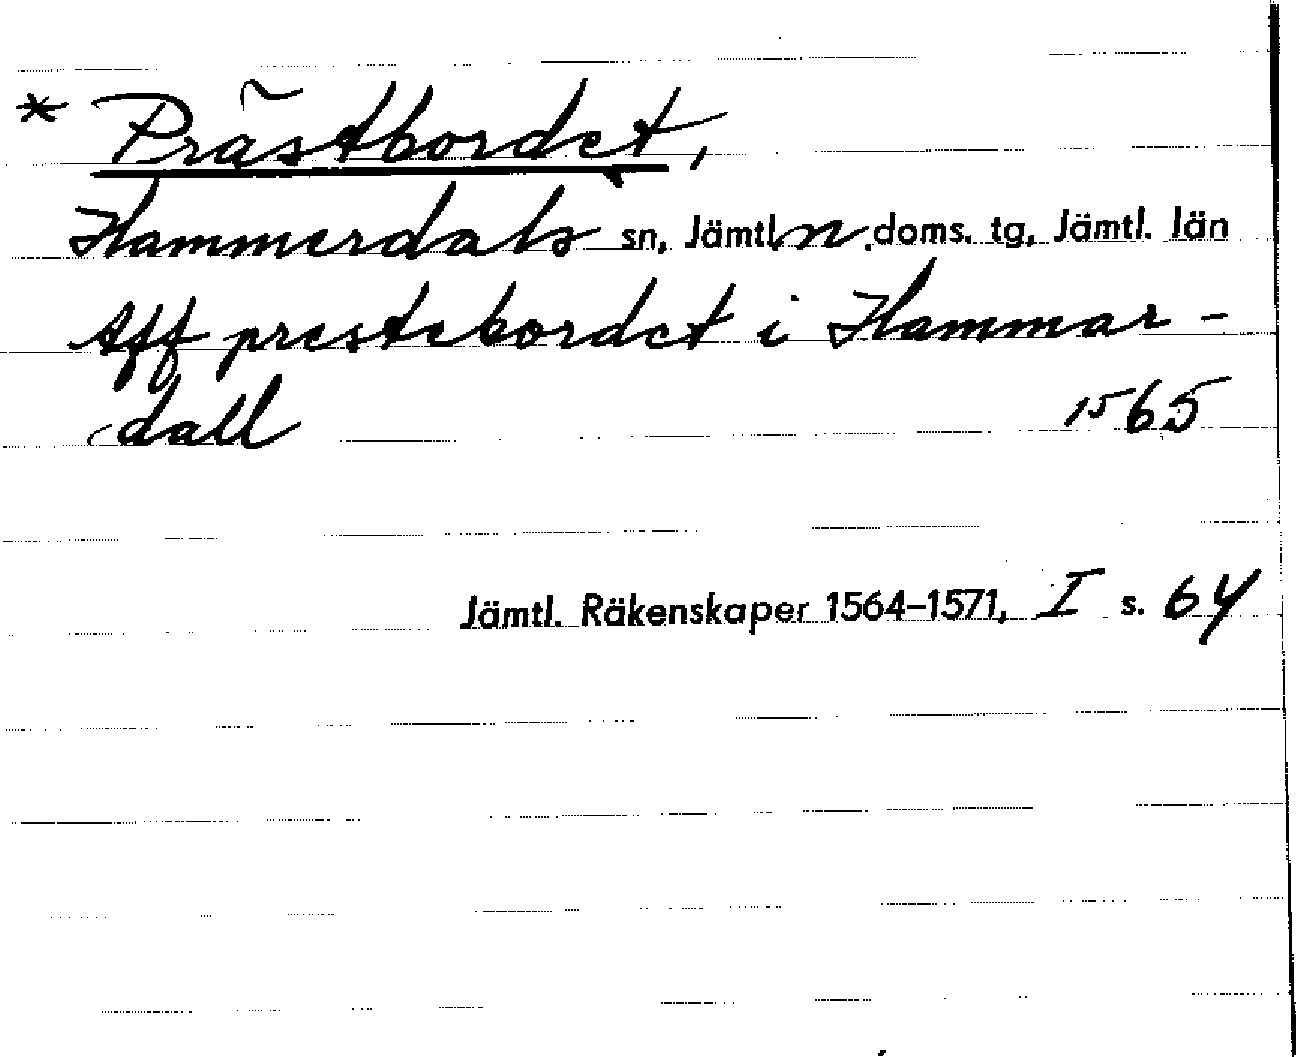 * Prästbordet,
Hammerdals sn, Jämtl. n. doms. tg, Jämtl. län
Aff prestebordet i Hammar-
dall 1565
Jämtl. Räkenskaper 1564–1571, I s. 64